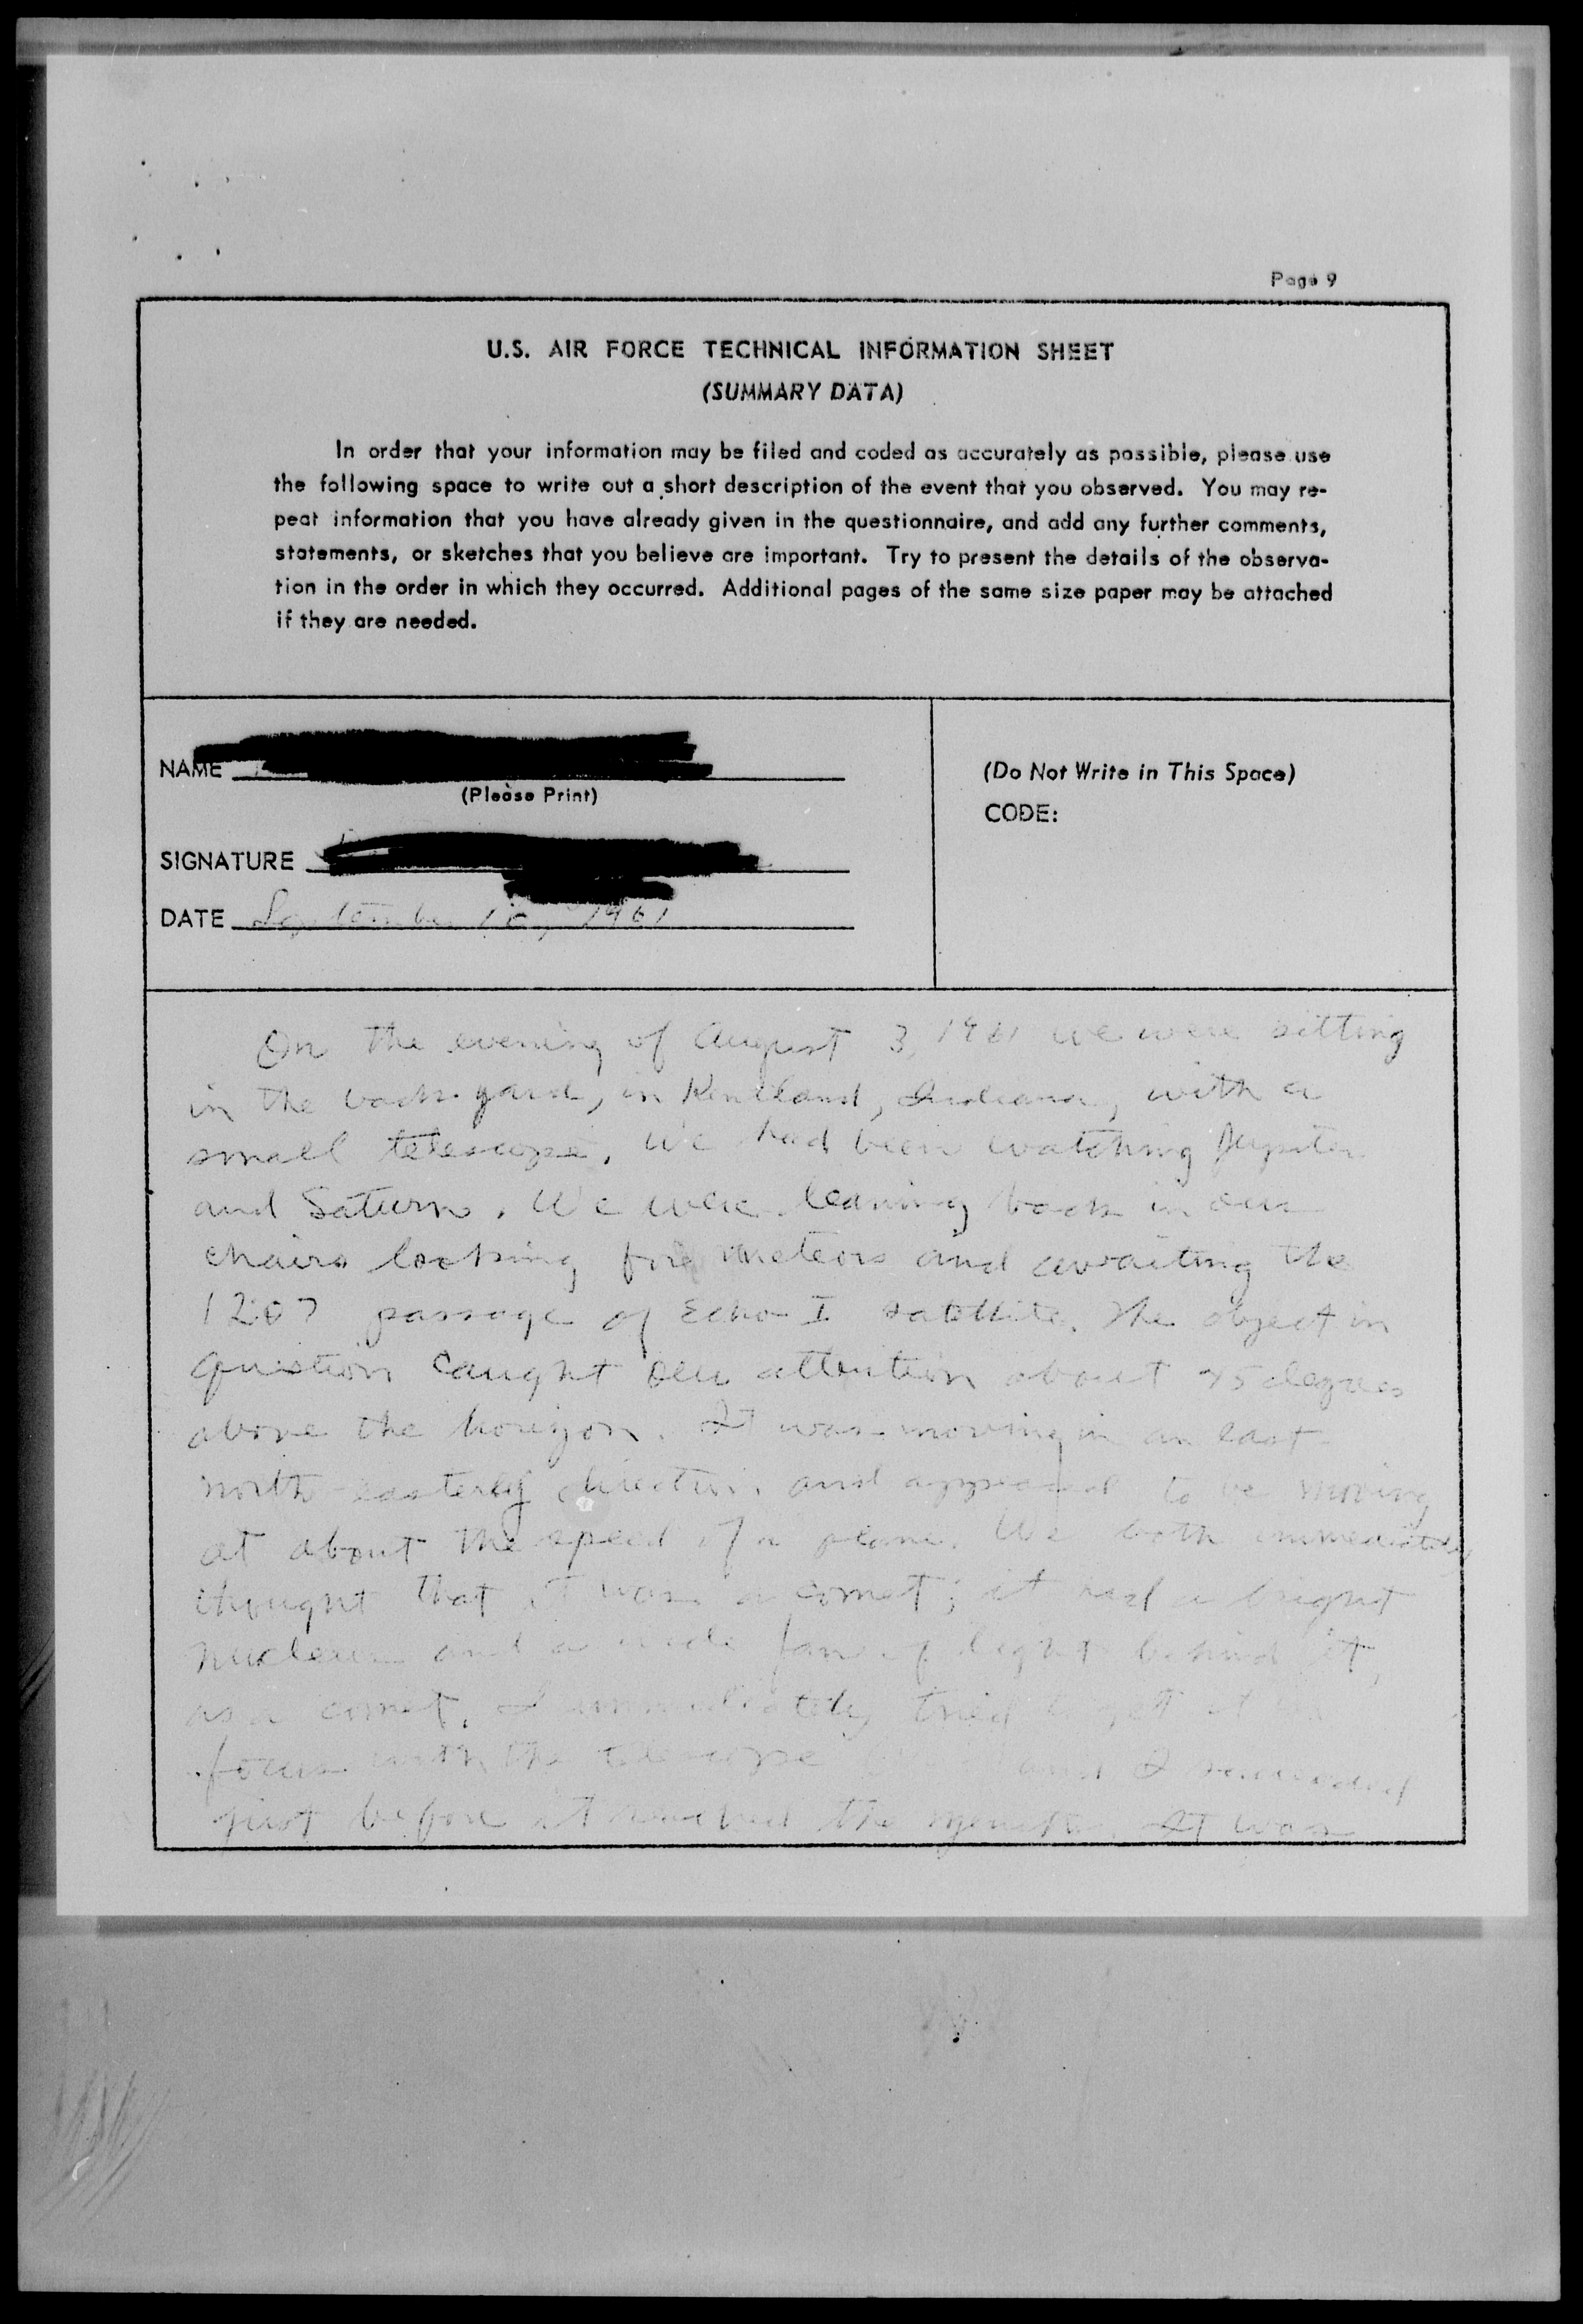 Page 9
U.S. AIR FORCE TECHNICAL INFORMATION SHEET
(SUMMARY DATA)
In order that your information may be filed and coded as accurately as possible, please use
the following space to write out a short description of the event that you observed. You may re-
peat information that you have already given in the questionnaire, and add any further comments,
statements, or sketches that you believe are important. Try to present the details of the observa-
tion in the order in which they occurred. Additional pages of the same size paper may be attached
if they are needed.
NAME
(Please Print)
(Do Not Write in This Space)
CODE:
SIGNATURE
DATE September 1961
On the evening of August 3, 1961 we were sitting
in the back yard, in Kentland, Indiana, with a
small telescope. We had been watching Jupiter
and Saturn. We were leaning back in our
chairs looking for meteors and awaiting the
12:07 passage of Echo I satellite. The object in
question caught our attention about 45 degrees
above the horizon. It was moving in an east
north-easterly direction and appeared to be moving
at about the speed of a plane. We both immediately
thought that it was a comet; it had a bright
nucleus and a wide fan of light behind it,
as a comet. I immediately tried to get it in
focus with the telescope and I succeeded
just before it reached the zenith. It was